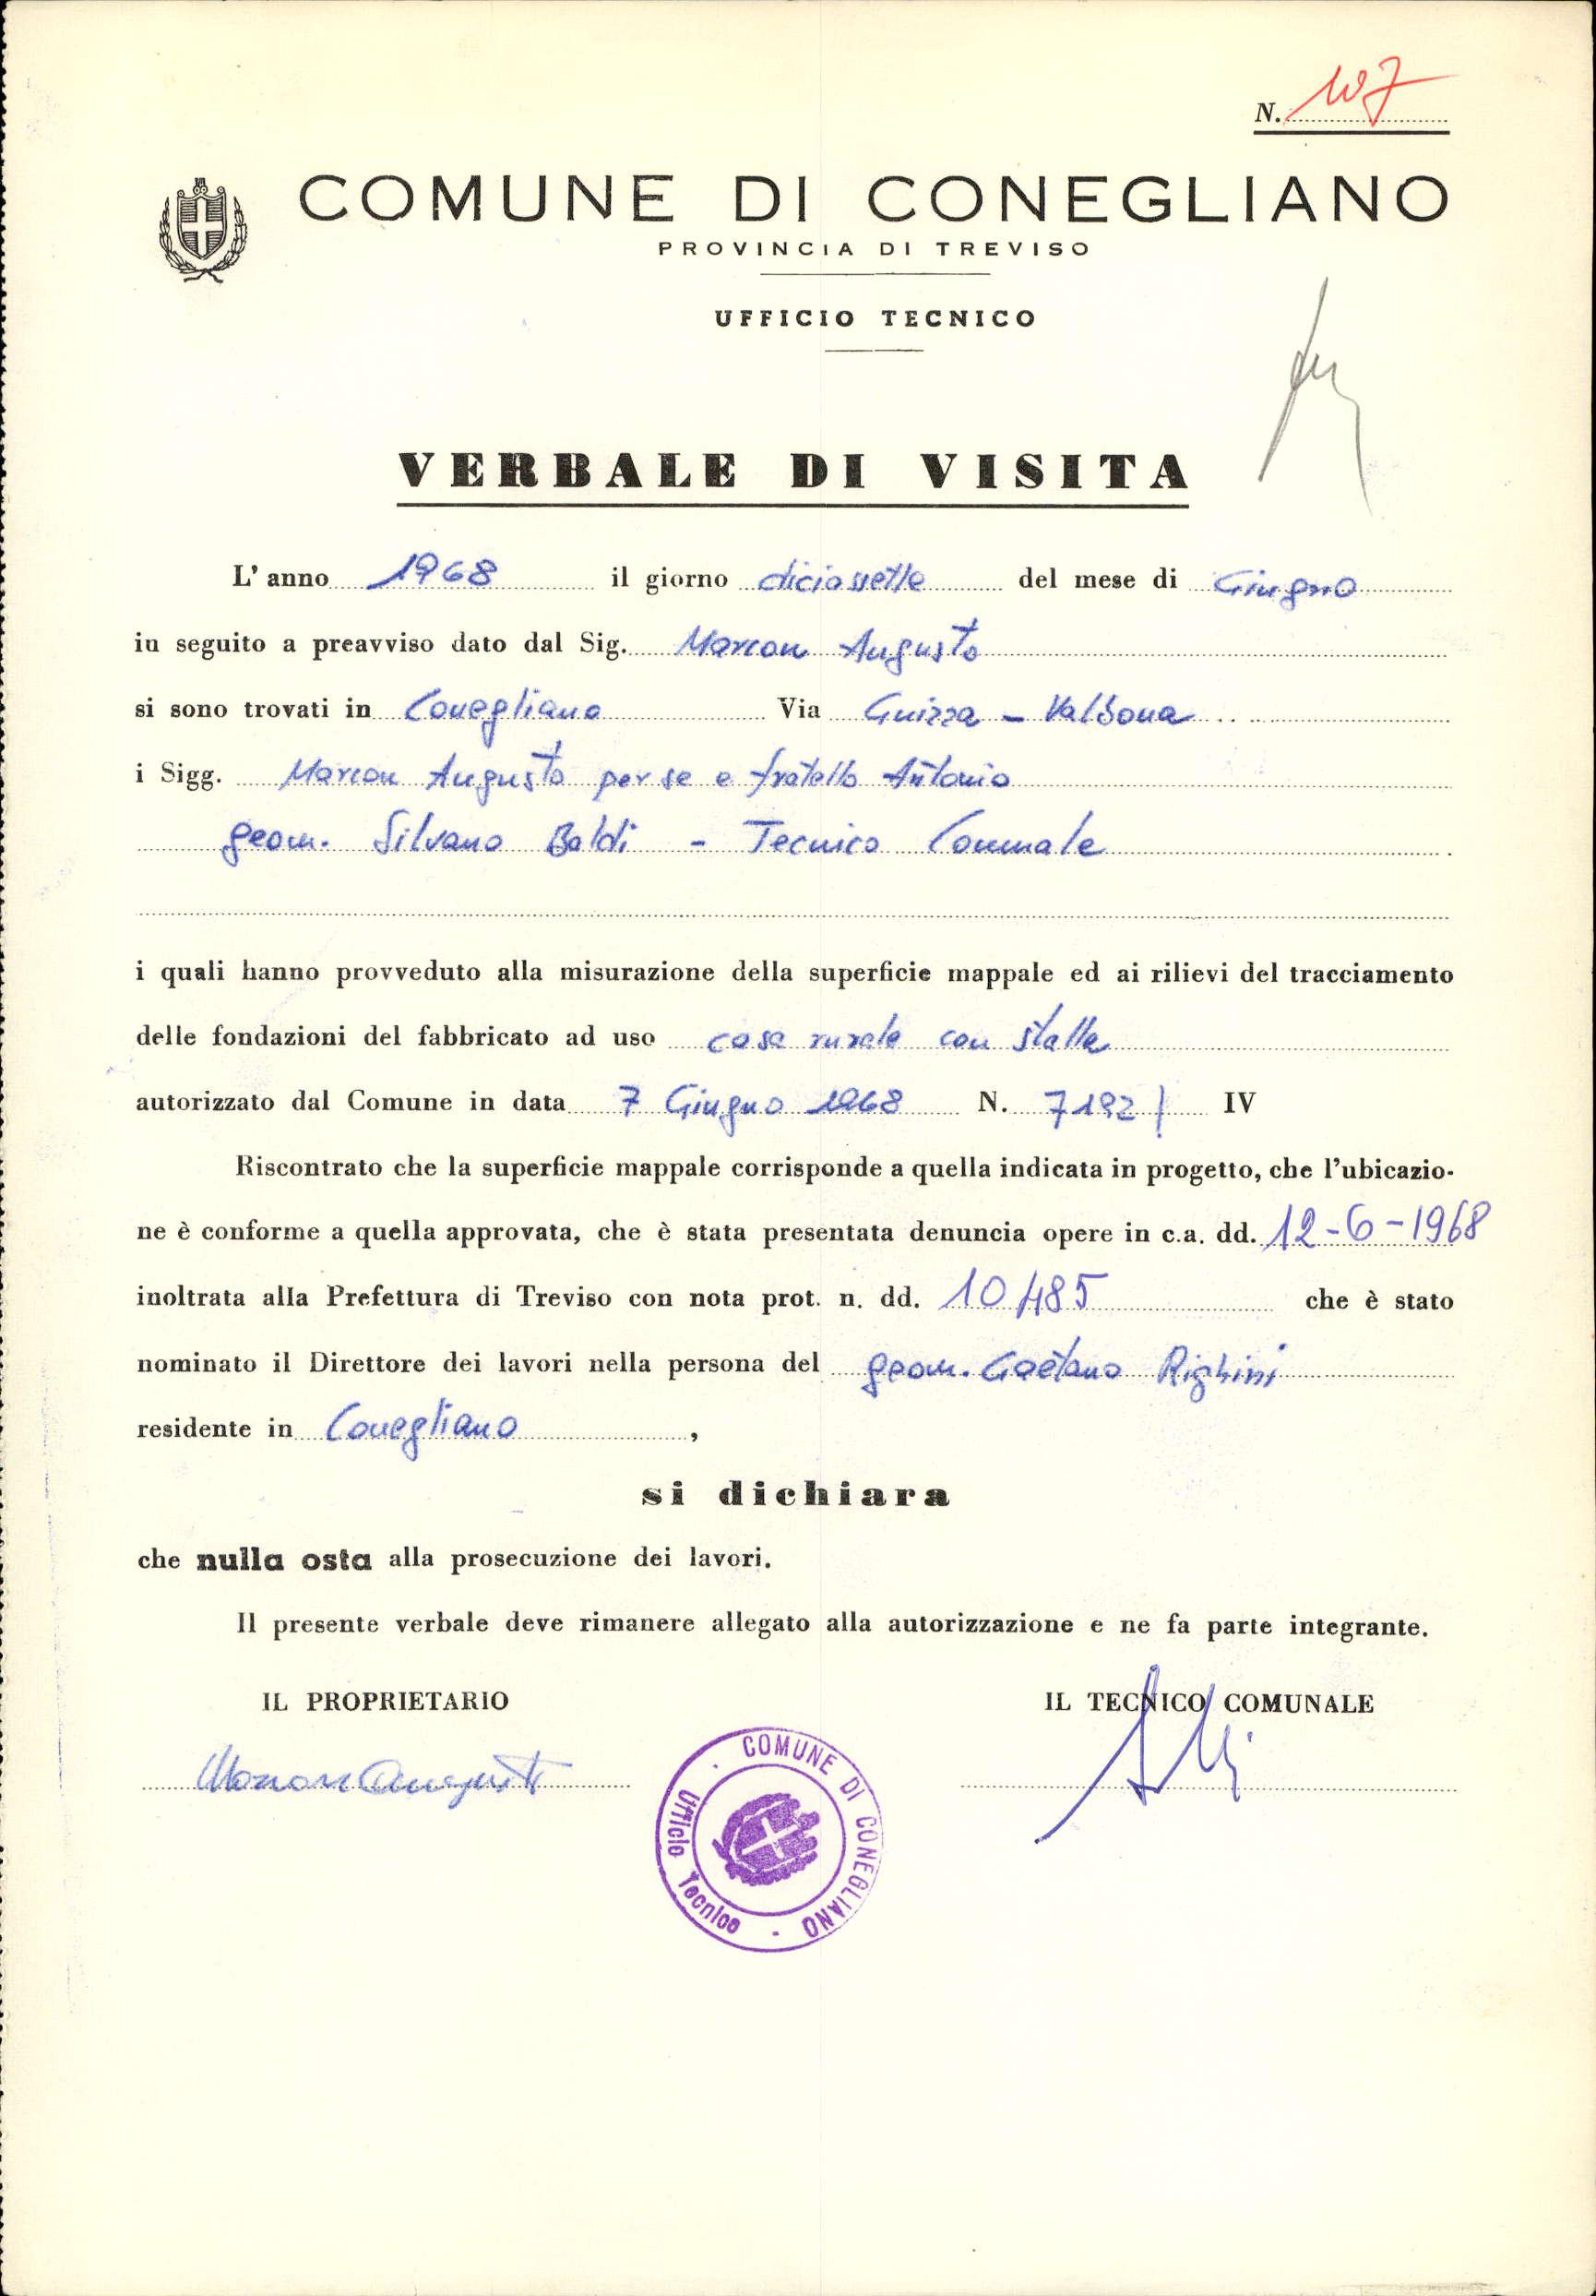 N. 107
COMUNE DI CONEGLIANO
PROVINCIA DI TREVISO
UFFICIO TECNICO
VERBALE DI VISITA
L' anno 1968 il giorno diciassette del mese di Giugno
in seguito a preavviso dato dal Sig. Marcon Augusto
si sono trovati in Conegliano Via Guizza - Valbona
i Sigg. Marcon Augusto per se e fratello Antonio
geom. Silvano Baldi - Tecnico Comunale
i quali hanno provveduto alla misurazione della superficie mappale ed ai rilievi del tracciamento
delle fondazioni del fabbricato ad uso casa rurale con stalla
autorizzato dal Comune in data 7 Giugno 1968 N. 7192 / IV
Riscontrato che la superficie mappale corrisponde a quella indicata in progetto, che l'ubicazio-
ne è conforme a quella approvata, che è stata presentata denuncia opere in c.a. dd. 12-6-1968
inoltrata alla Prefettura di Treviso con nota prot. n. dd. 10485 che è stato
nominato il Direttore dei lavori nella persona del geom. Gaetano Righini
residente in Conegliano ,
si dichiara
che nulla osta alla prosecuzione dei lavori.
Il presente verbale deve rimanere allegato alla autorizzazione e ne fa parte integrante.
IL PROPRIETARIO IL TECNICO COMUNALE
Marcon Augusto
COMUNE DI CONEGLIANO - Ufficio Tecnico -